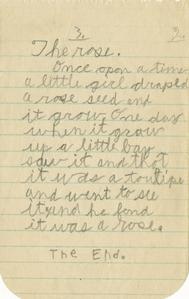 3.
The rose.
Once upon a time
a little girl draped
a rose seed and
it grow. One day
when it grow
up a little boy
saw it and thot
it was a toulipe
and went to see
it and he fond
it was a rose.
The End.